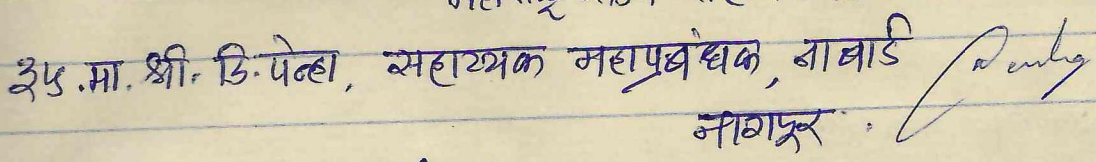 ३५.मा. श्री. डि. पेन्हा, सहाय्यक महाप्रबंधक, नाबार्ड
नागपूर.